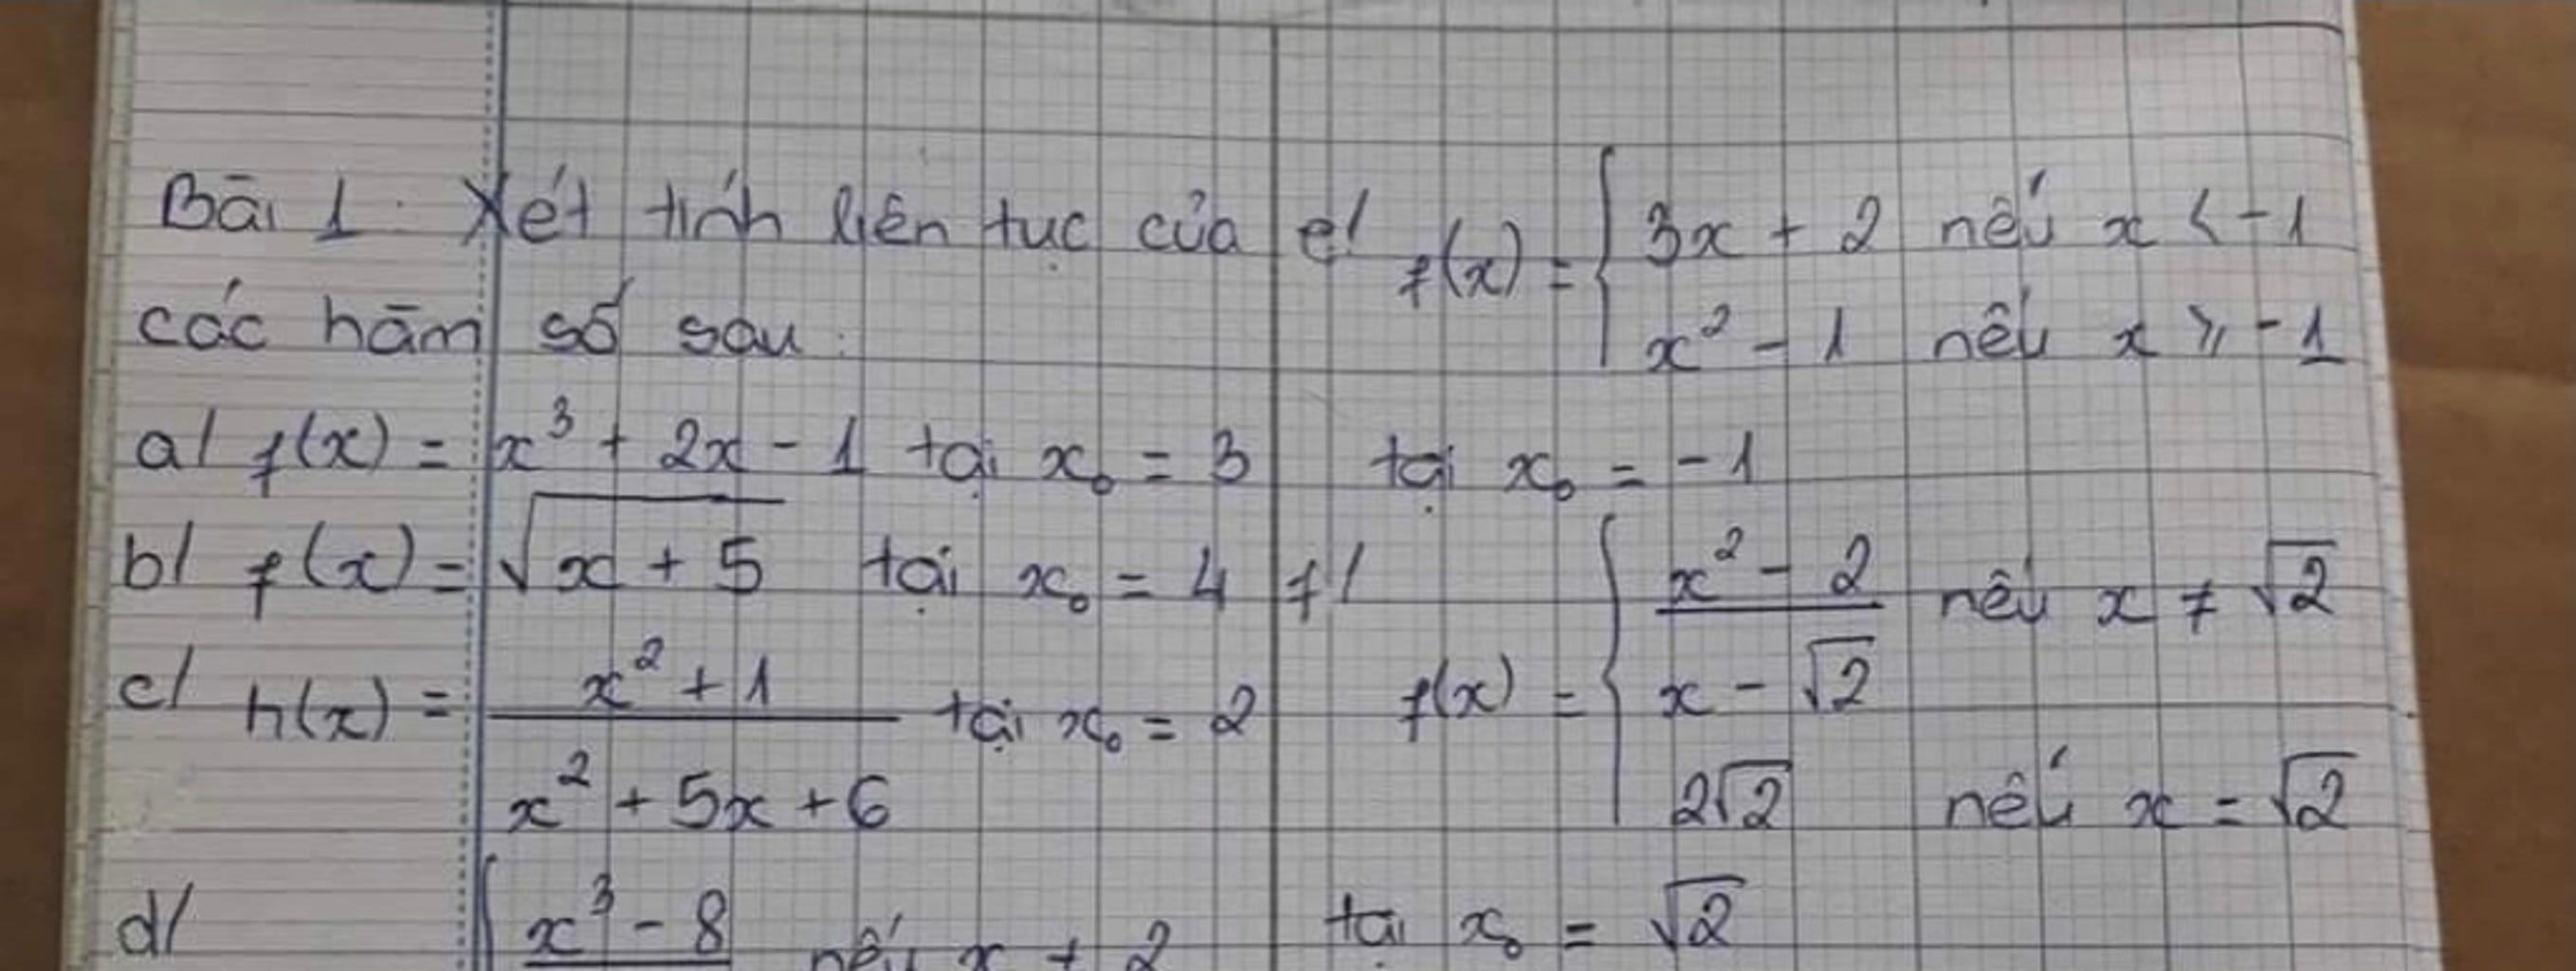 Bài 1: Xét tính liên tục của
các hàm số sau:
a/ f(x) = x³ + 2x - 1 tại x₀ = 3
b/ f(x) = √(x + 5) tại x₀ = 4
c/ h(x) = (x² + 1)/(x² + 5x + 6) tại x₀ = 2
d/ { (x³ - 8) nếu x ≠ 2
e/ f(x) = { 3x + 2 nếu x < -1
x² - 1 nếu x ⩾ -1
tại x₀ = -1
f/ f(x) = { (x² - 2)/(x - √2) nếu x ≠ √2
2√2 nếu x = √2
tại x₀ = √2